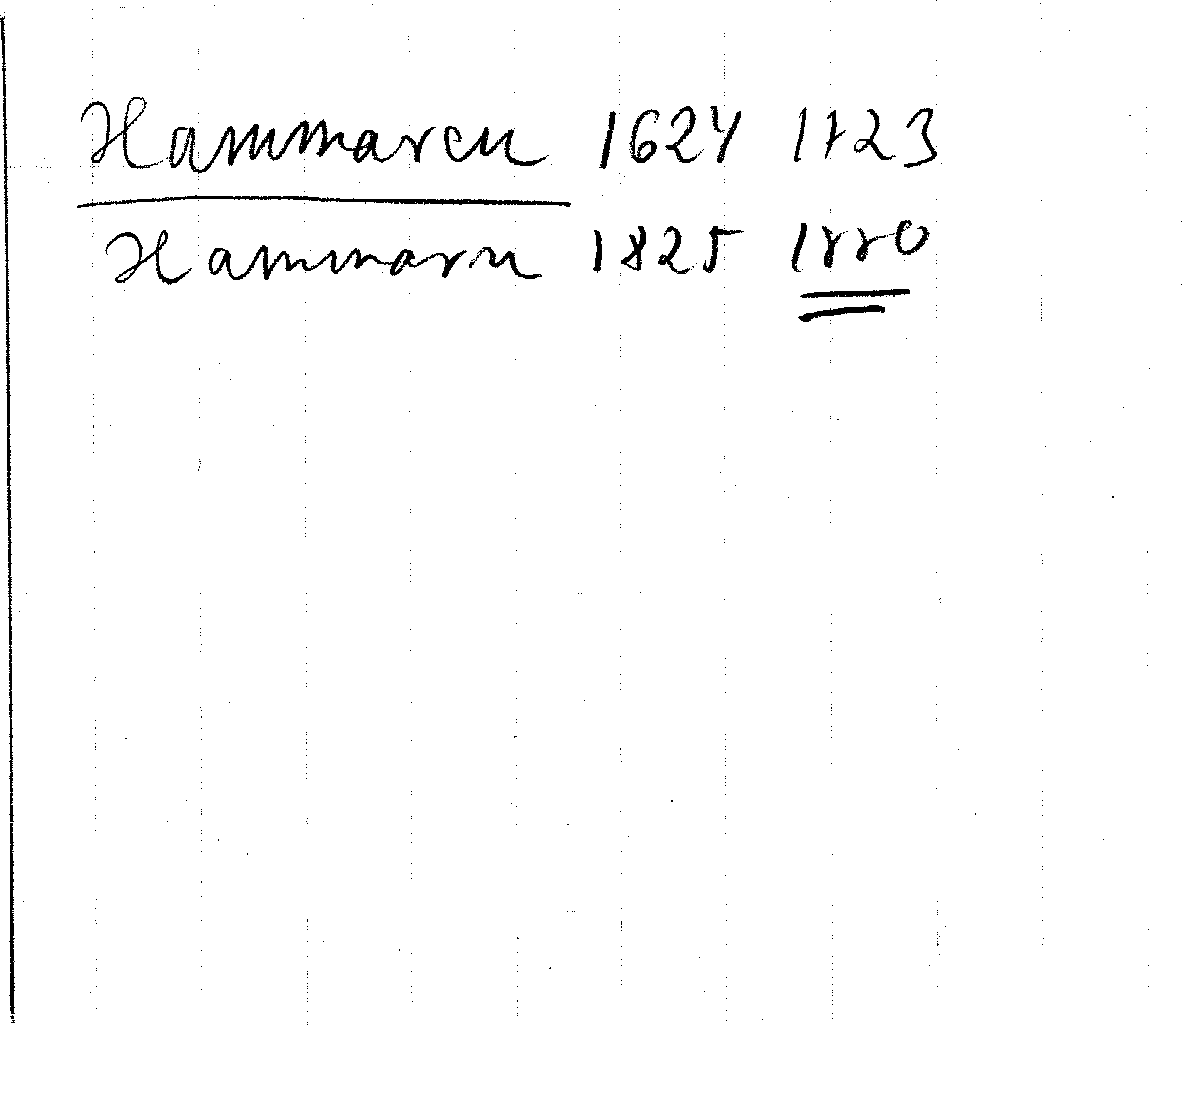 Hammaren 1624 1723
Hammarn 1825 1880